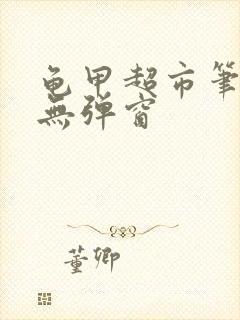 龟甲超市笔
無弹窗
董卿